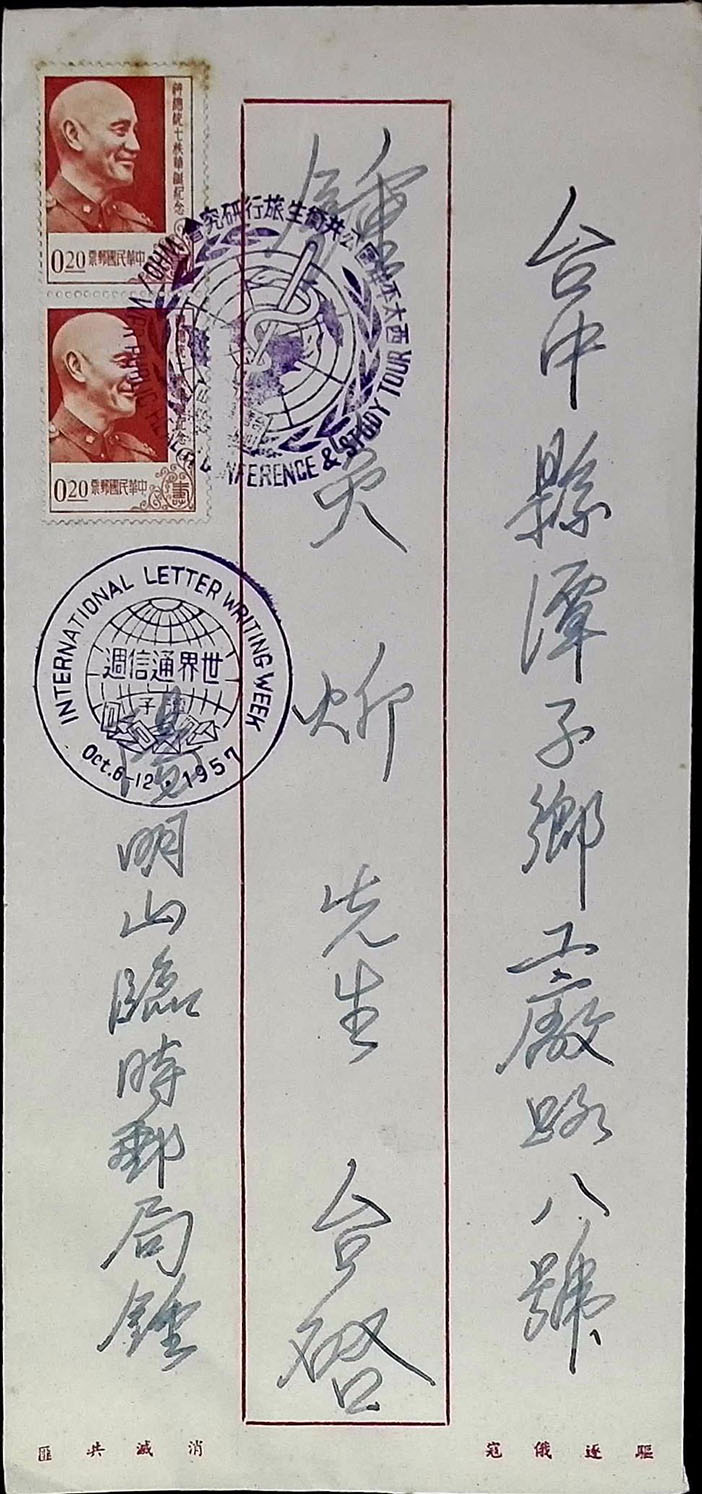 台中縣潭子鄉工廠路八號
鍾炎先生 台啓
陽明山臨時郵局鍾
蔣總統七秩華誕紀念
中華民國郵票
0.20
中華民國郵票
0.20
西太平洋區公共衛生旅行研究會
CONFERENCE & STUDY TOUR
INTERNATIONAL LETTER WRITING WEEK
世界通信週
潭子
Oct.6-12.1957
驅逐俄寇
消滅共匪